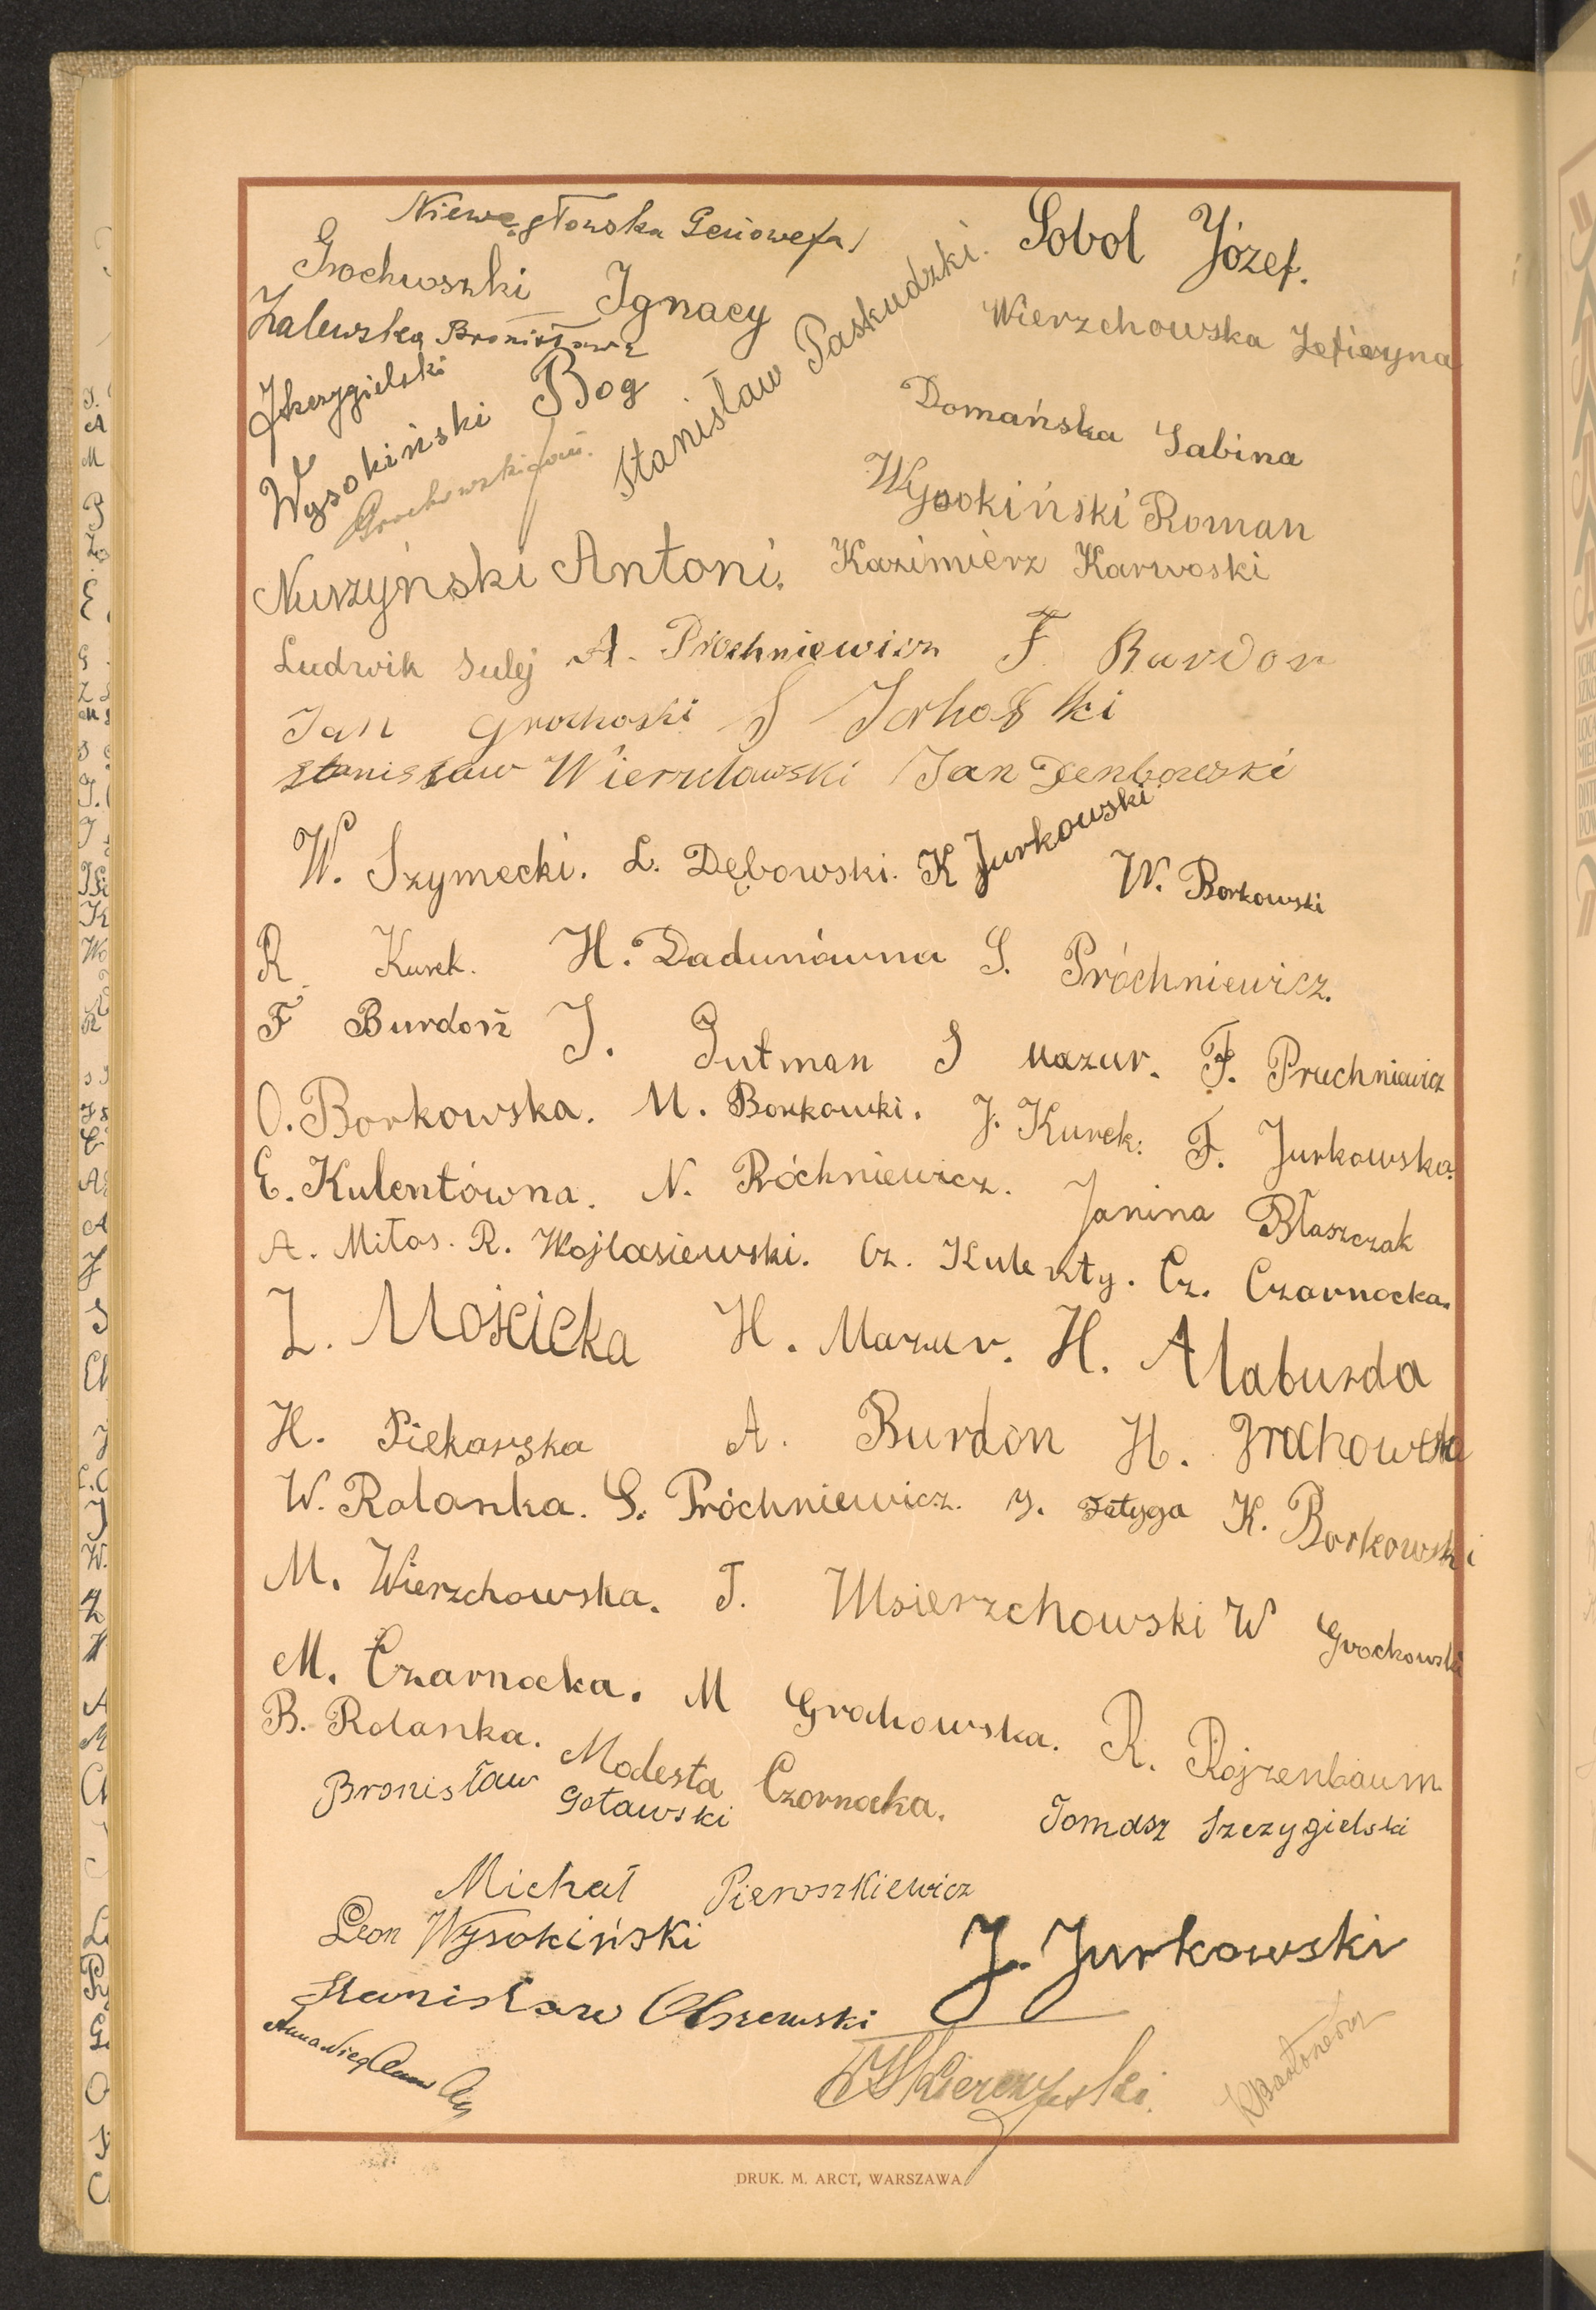 Niewęgłowska Genowefa
Sobol Józef.
Grochowski Ignacy
Zalewska Bronisława
Stanisław Paskudzki.
Wierzchowska Zefiryna
Wysokiński Bog
Domańska Sabina
Wysokiński Roman
Nurzyński Antoni.
Kazimierz Karwoski
Ludwik Sulej A. Próchniewicz F. Burdon
Jan Grochoski S
Stanisław Jan
W. Szymecki. L. Dębowski. K Jurkowski
W. Borkowski
R. Kurek. H. Dadunówna S. Próchniewicz.
F Burdoń J. Gutman S Mazur. F. Pruchniewicz
O. Borkowska. M. Borkowki. J. Kurek. F. Jurkowska.
E. Kulentówna. N. Próchniewicz. Janina Błaszczak
A. Miłos. R. Wojlasiewski. Cz. Kulenty. Cz. Czarnocka.
Z. Mościcka H. Mazur. H.Ałaburda
H. Piekarska A. Burdon H. Grochowska
W. Rolanka. S. Próchniewicz. Y. Fatyga K. Borkowski
M. Wierzchowska. T. W Grochowski
M. Czarnocka. M Grochowska. R. Rojzenbaum
B. Rolanka. Modesta Czornocka.
Bronisław Goławski
Tomasz Szczygielski
Michał Pieroszkiewicz
Leon Wysokiński
J. Jurkowski
Stanisław Olszewski
Anna
DRUK. M. ARCT, WARSZAWA